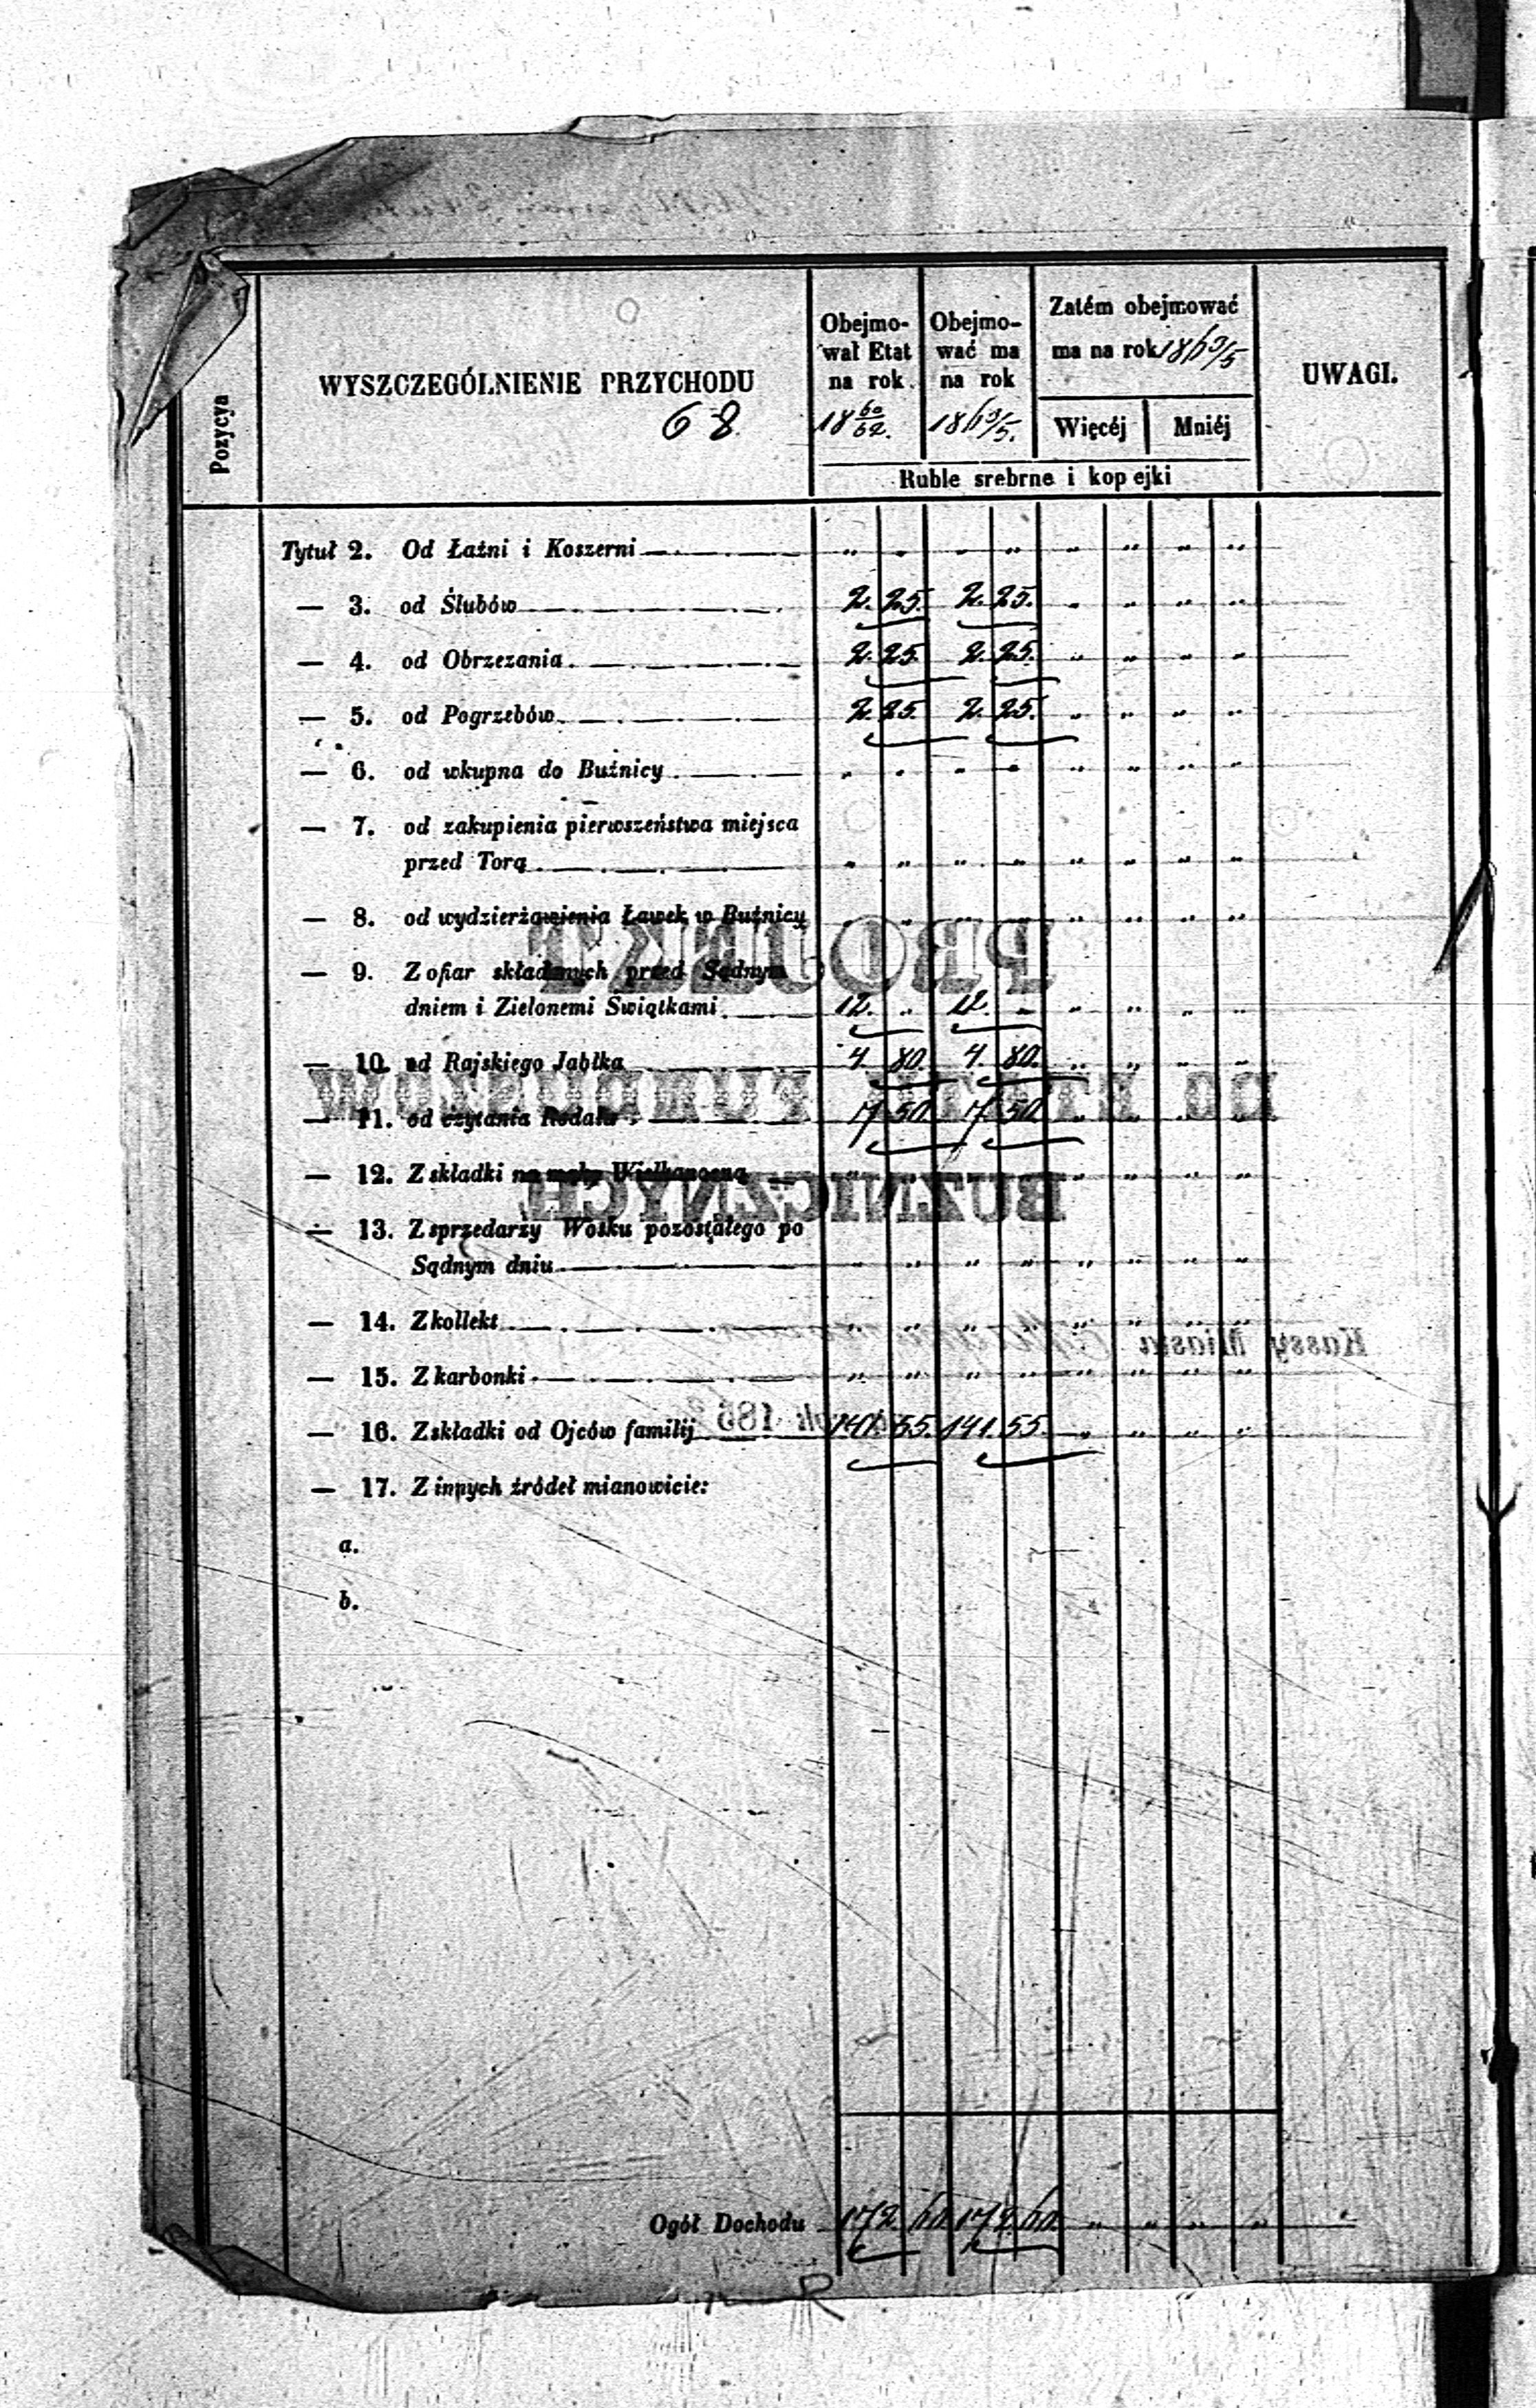 Pozycya
WYSZCZEGÓLNIENIE PRZYCHODU
68.
Obejmo-
wał Etat
na rok
18 60/62.
Obejmo-
wać ma
na rok
18 63/5.
Zatém obejmować
ma na rok 18 63/5
Więcéj Mniéj
UWAGI.
Ruble srebrne i kopejki
Tytuł 2. Od Łaźni i Koszerni „ „ „ „ „ „ „ „
— 3. od Ślubów 2. 25. 2. 25. „ „ „ „
— 4. od Obrzezania 2. 25. 2. 25. „ „ „ „
— 5. od Pogrzebów 2. 25. 2. 25. „ „ „ „
— 6. od wkupna do Buźnicy „ „ „ „ „ „ „ „
— 7. od zakupienia pierwszeństwa miejsca
przed Torą „ „ „ „ „ „ „ „
— 8. od wydzierżawienia Ławek w Buźnicy „ „ „ „ „ „ „ „
— 9. Z ofiar składanych przed Sądnym
dniem i Zielonemi Swiątkami 12. „ 12. „ „ „ „ „
— 10. od Rajskiego Jabłka 4. 80. 4. 80. „ „ „ „
— 11. od czytania Rodału 7. 50. 7. 50. „ „ „ „
— 12. Z składki na mąkę Wielkanocną „ „ „ „ „
— 13. Z sprzedarży Wosku pozostałego po
Sądnym dniu „ „ „ „ „ „ „ „
— 14. Z kollekt „ „ „ „ „ „ „ „
— 15. Z karbonki „ „ „ „ „ „ „ „
— 16. Z składki od Ojców familij 141. 55. 141. 55. „ „ „ „
— 17. Z innych źródeł mianowicie:
a.
b.
Ogół Dochodu 172. 60. 172. 60. „ „ „ „
PROJEKT
DO ETATU FUNDUSZÓW
BUŹNICZNYCH
Kassy Miasta
rok 185